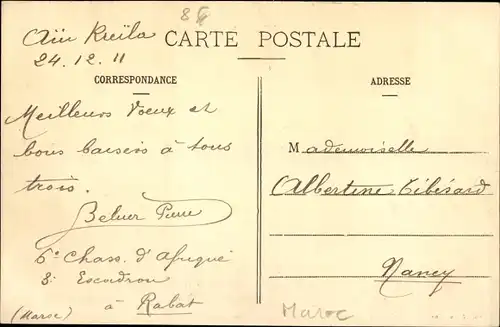 Aïn Kreïla
24.12.11
CARTE POSTALE
CORRESPONDANCE
ADRESSE
Meilleurs Voeux et
bons baisers à tous
trois.
Pierre
6e Chass. d'Afrique
3e Escadron
à Rabat
(Maroc)
Mademoiselle
Albertine
Nancy
Maroc